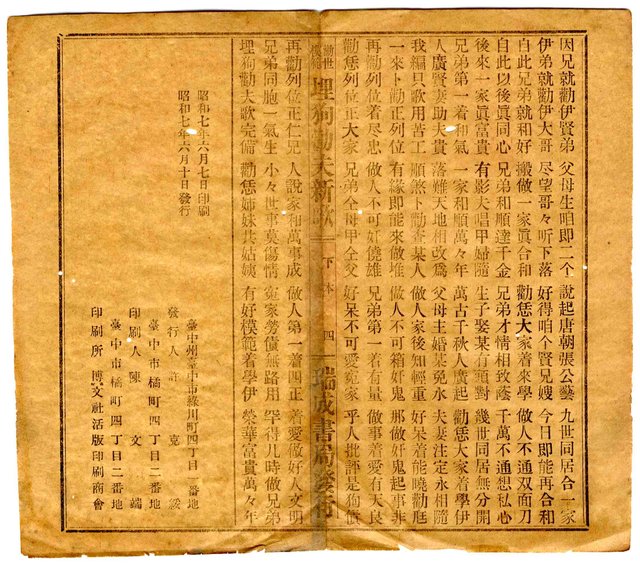 因兄就勸伊賢弟 父母生咱即二个 說起唐朝張公藝 九世同居合一家
伊弟就勸伊大哥 尽望哥々听下落 好得咱个賢兄嫂 今日即能再合和
自此兄弟就和好 搬做一家眞合和 勸恁大家着來學 做人不通双面刀
自此以後眞同心 兄弟和順達千金 兄弟才情相致蔭 千萬不通想私心
後來一家眞富貴 有影夫唱甲婦隨 生子娶某有額對 幾世同居無分開
兄弟第一着和氣 一家和順萬々年 萬古千秋人廣起 勸恁大家着學伊
人廣賢妻助夫貴 落难天地相改爲 父母主婚某免水 夫妻注定永相隨
我編只歌用苦工 順煞卜勸查某人 做人家後知輕重 好呆着能曉勸尫
一來卜勸正列位 有緣即能來做堆 做人不可箱奸鬼 那做奸鬼起事非
再勸列位着尽忠 做人不可奸僥雄 兄弟第一着有量 做事着愛有天良
勸恁列位正大家 兄弟仝母甲仝父 好呆不可愛冤家 乎人批評是狗債
勸世模範 埋狗勸夫新歌 下本 四 瑞成書局發行
再勸列位正仁兄 人說家和萬事成 做人第一着四正 着愛做好人文明
兄弟同胞一氣生 小々世事莫傷情 冤家勞債無路用 罕得几時做兄弟
埋狗勸夫歌完備 勸恁姊妹共姑姨 有好模範着學伊 榮華富貴萬々年
昭和七年六月七日印刷
昭和七年六月十日發行
臺中州臺中市綠川町四丁目一番地
發行人 許克綏
臺中市橘町四丁目二番地
印刷人 陳文端
臺中市橘町四丁目二番地
印刷所 博文社活版印刷商會